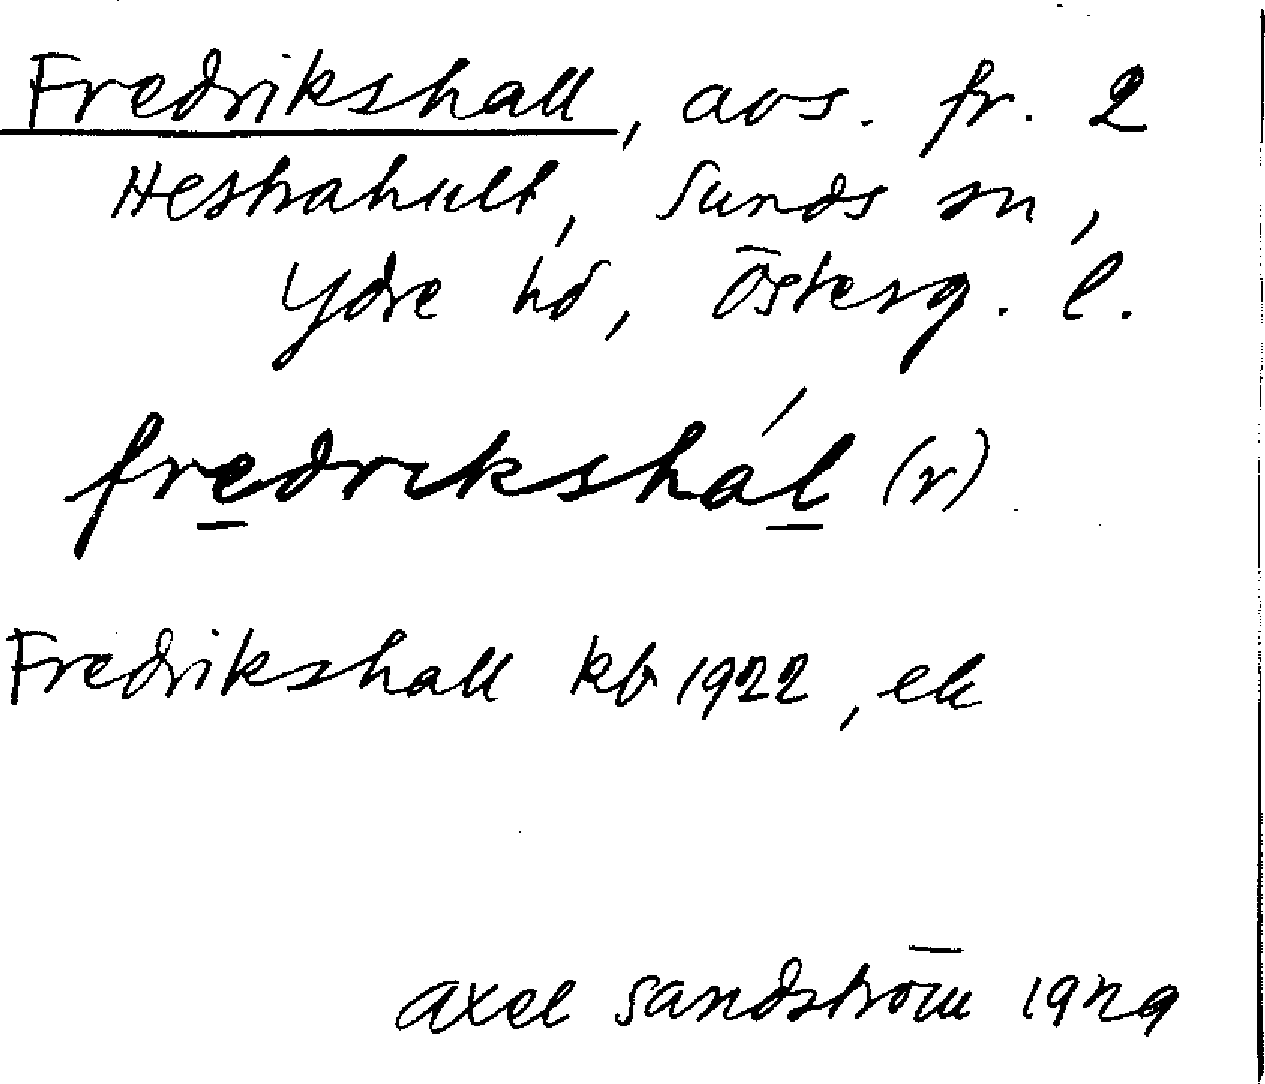 Fredrikshall, avs. fr. 2
Hestrahult, Sunds sn,
Ydre hd, Österg. l.
fredrikshál (r)
Fredrikshall kb 1922, ek
Axel Sandström 1929